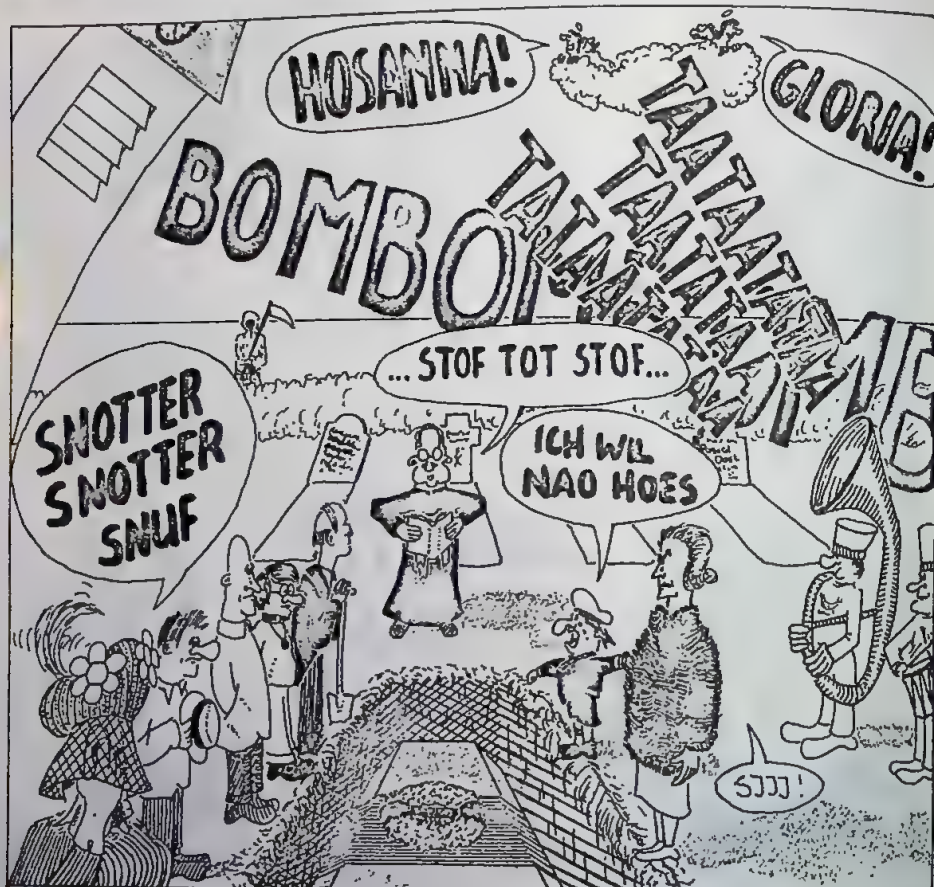 HOSANNA!
GLORIA!
BOMBO
TATAATAATAA
TAATAATAA
TAATAATAA
... STOF TOT STOF...
SNOTTER
SNOTTER
SNUF
ICH WIL
NAO HOES
SJJJ!